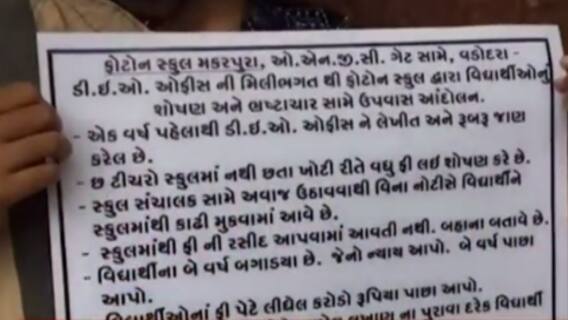 ફોટોન સ્કુલ મકરપુરા, ઓ.એન.જી.સી. ગેટ સામે, વડોદરા -
ડી.ઇ.ઓ. ઓફીસ ની મિલીભગત થી ફોટોન સ્કુલ દ્વારા વિદ્યાર્થીઓનું
શોષણ અને ભ્રષ્ટાચાર સામે ઉપવાસ આંદોલન.
- એક વર્ષ પહેલાથી ડી.ઇ.ઓ. ઓફીસ ને લેખીત અને રૂબરૂ જાણ
કરેલ છે.
- છ ટીચરો સ્કુલમાં નથી છતા ખોટી રીતે વધુ ફી લઇ શોષણ કરે છે.
- સ્કુલ સંચાલક સામે અવાજ ઉઠાવવાથી વિના નોટીસે વિદ્યાર્થીને
સ્કુલમાંથી કાઢી મુકવામાં આવે છે.
- સ્કુલમાંથી ફી ની રસીદ આપવામાં આવતી નથી. બહાના બતાવે છે.
- વિદ્યાર્થીના બે વર્ષ બગાડયા છે. જેનો ન્યાય આપો. બે વર્ષ પાછા
આપો.
વિદ્યાર્થીઓનાં ફી પેટે લીધેલ કરોડો રૂપિયા પાછા આપો.
ના પુરાવા દરેક વિદ્યાર્થી